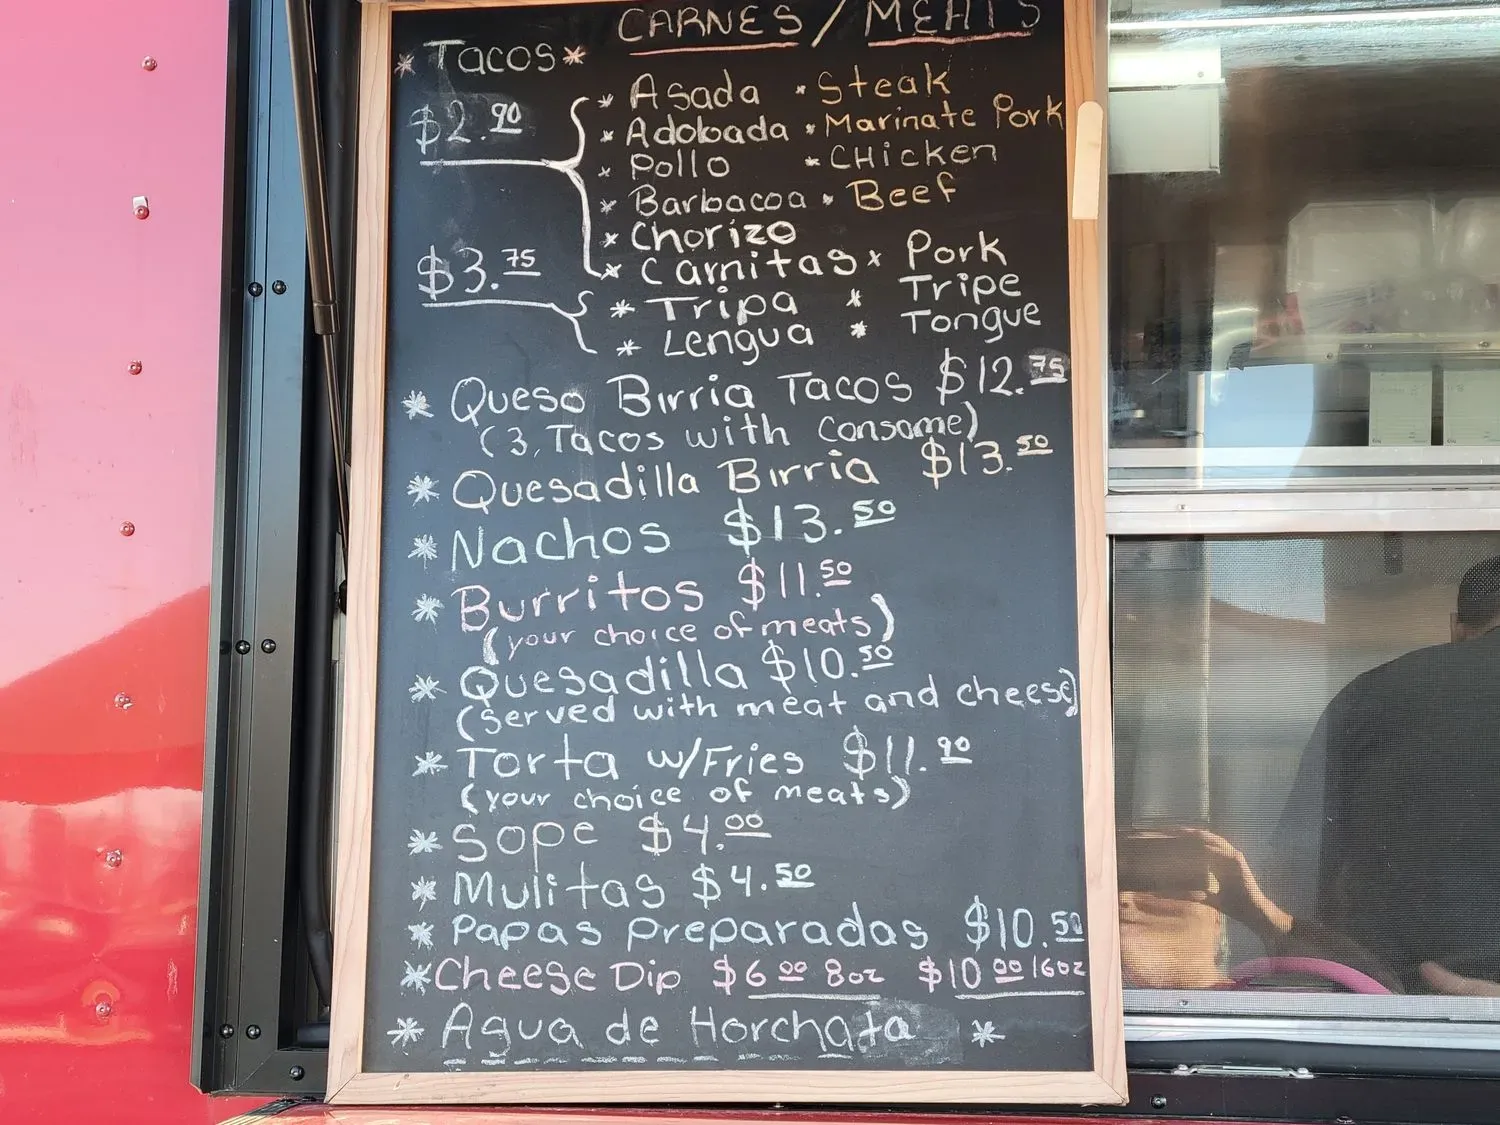 CARNES / MEATS
* Tacos *
$2.90
* Asada * Steak
* Adobada * Marinate Pork
* Pollo * CHicken
* Barbacoa * Beef
* Chorizo
* Carnitas * Pork
$3.75
* Tripa * Tripe
* Lengua * Tongue
* Queso Birria Tacos $12.75
(3, Tacos with Consome)
* Quesadilla Birria $13.50
* Nachos $13.50
* Burritos $11.50
(your choice of meats)
* Quesadilla $10.50
(Served with meat and cheese)
* Torta w/Fries $11.90
(your choice of meats)
* Sope $4.00
* Mulitas $4.50
* Papas Preparadas $10.50
* Cheese Dip $6 00 8oz $10 00 16oz
* Agua de Horchata *